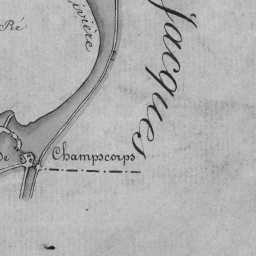 Ré
ivière
Jacques
de Champscorps